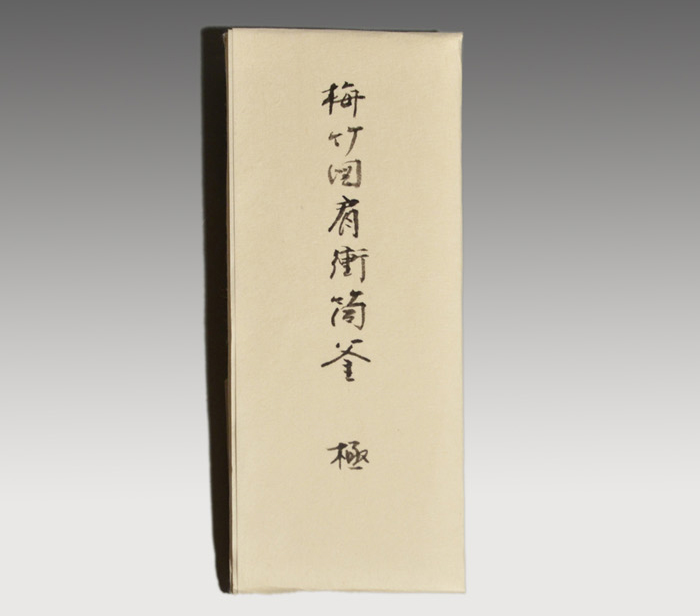 梅竹図肩衝筒釜　極